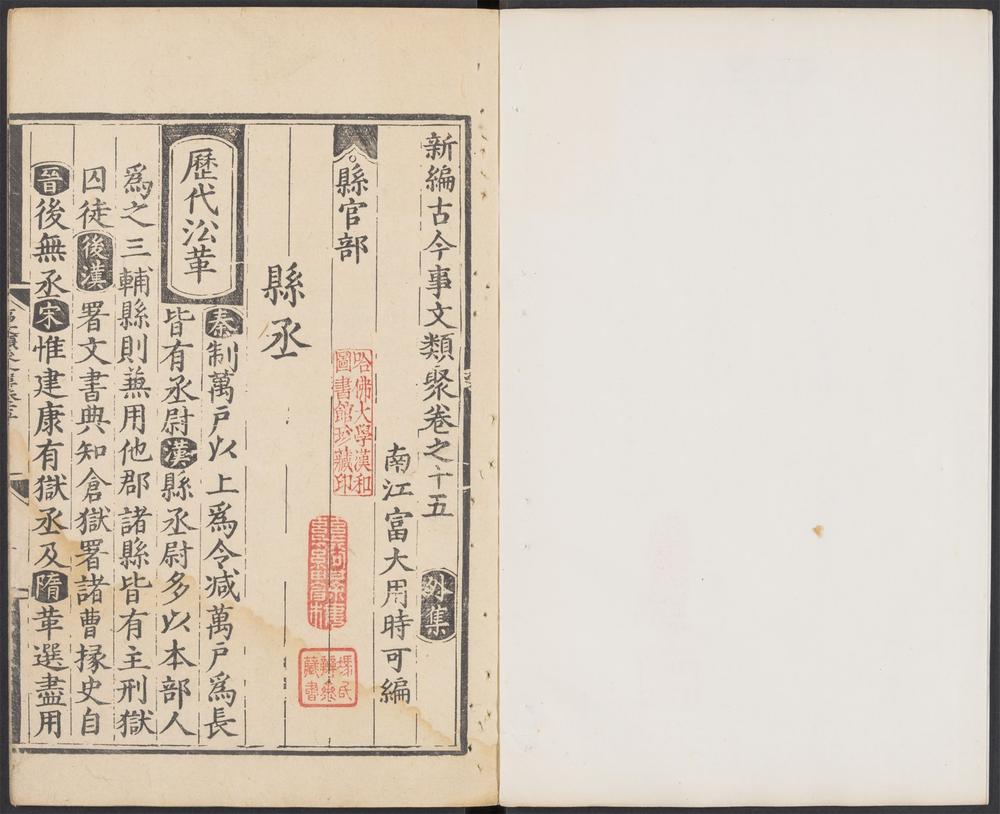 新編古今事文類聚卷之十五 外集
南江富大用時可編
縣官部
縣丞
歷代㳂革
秦制萬戶以上爲令减萬戶爲長
皆有丞尉漢縣丞尉多以本部人
爲之三輔縣則兼用他郡諸縣皆有主刑獄
囚徒後漢署文書典知倉獄署諸曹掾史自
晉後無丞宋惟建康有獄丞及隋革選盡用
哈佛大學漢和
圖書館珍藏印
藏書